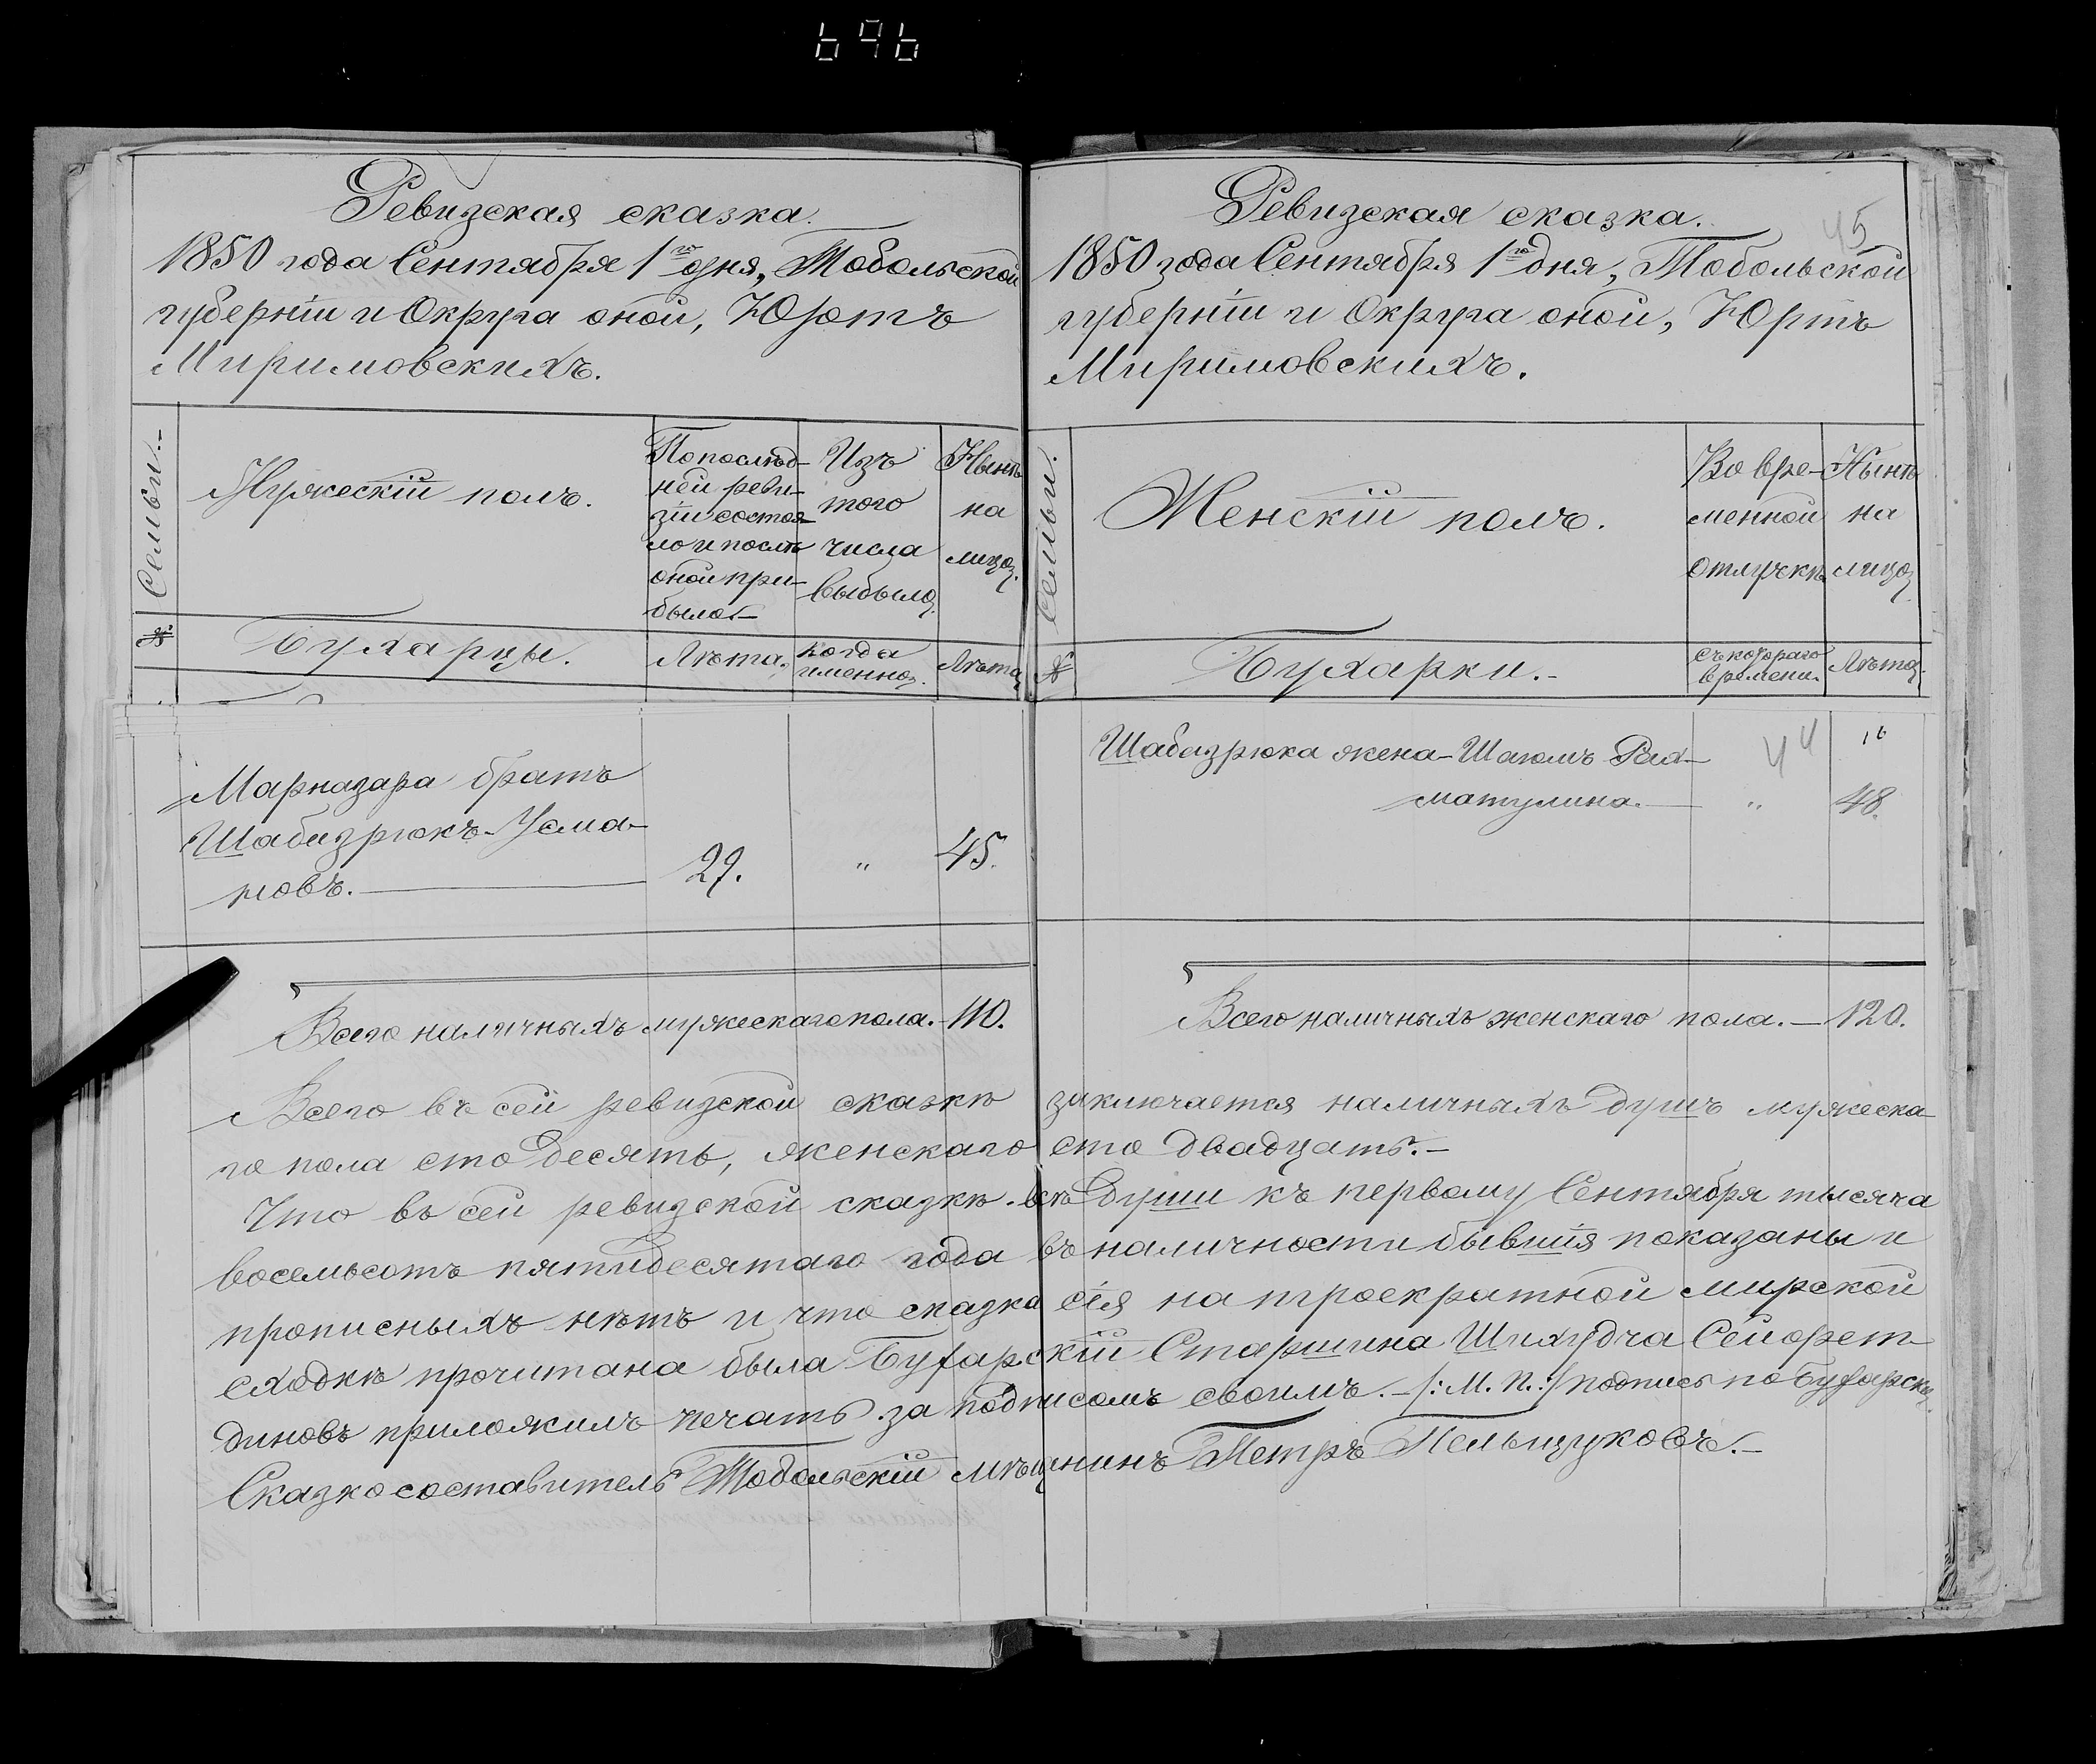 696
Ревизская сказка.
1850 года Сентября 1го дня, Тобольской
губернiи и Округа оной, Юртъ
Миримовскихъ.
Семьи.
Мужескiй полъ.
По послѣд-
ней реви-
зiи состоя-
ло и послѣ
оной при-
было.
Изъ
того
числа
выбыло.
Нынѣ
на
лицо.
№
Бухарцы.
Лѣта.
когда
именно.
Лѣта.
Марназара братъ
Шабизрюкъ Усма-
новъ. 29. " 45.
Всего наличныхъ мужескаго пола. 110.
45
Ревизская сказка.
1850 года Сентября 1го дня, Тобольской
губернiи и Округа оной, Юртъ
Миримовскихъ.
Семьи.
Женскiй полъ.
Во вре-
менной
отлучкѣ
Нынѣ
на
лицо.
№
Бухарки.
съ котораго
времени.
Лѣта.
44
Шабизрюка жена Шаюмъ Рах-
матулина. " 48.
Всего наличныхъ женскаго пола. 120.
Всего въ сей ревизской сказкѣ заключается наличныхъ душъ мужеска-
го пола сто десять, женскаго сто двадцать.
Что въ сей ревизской сказкѣ всѣ души къ первому Сентября тысяча
восемьсотъ пятидесятаго года въ наличности бывшiя показаны и
прописныхъ нѣтъ и что сказка сiя на троекратной мирской
сходкѣ прочитана была Бухарскiй Старшина Шихудча Сейфрет-
диновъ приложилъ печать за подписомъ своимъ. /: М. П. :/ подпись по Бухарски.
Сказкосоставитель Тобольскiй мѣщенинъ Петръ Пельщуковъ.